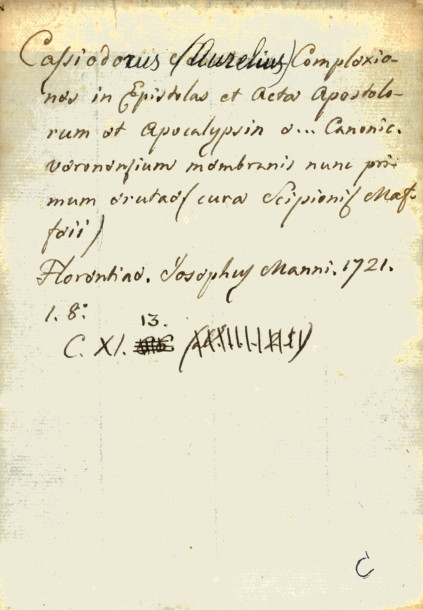 Cassiodorus (Aurelius) Complexio-
nes in Epistolas et Acta Apostolo-
rum et Apocalypsin e... Canonic.
veronensium membranis nunc pri
mum erutae (cura Scipionis Maf-
feii)
Florentiae. Josephus Manni. 1721.
1. 8:
13.
C. XI.
C